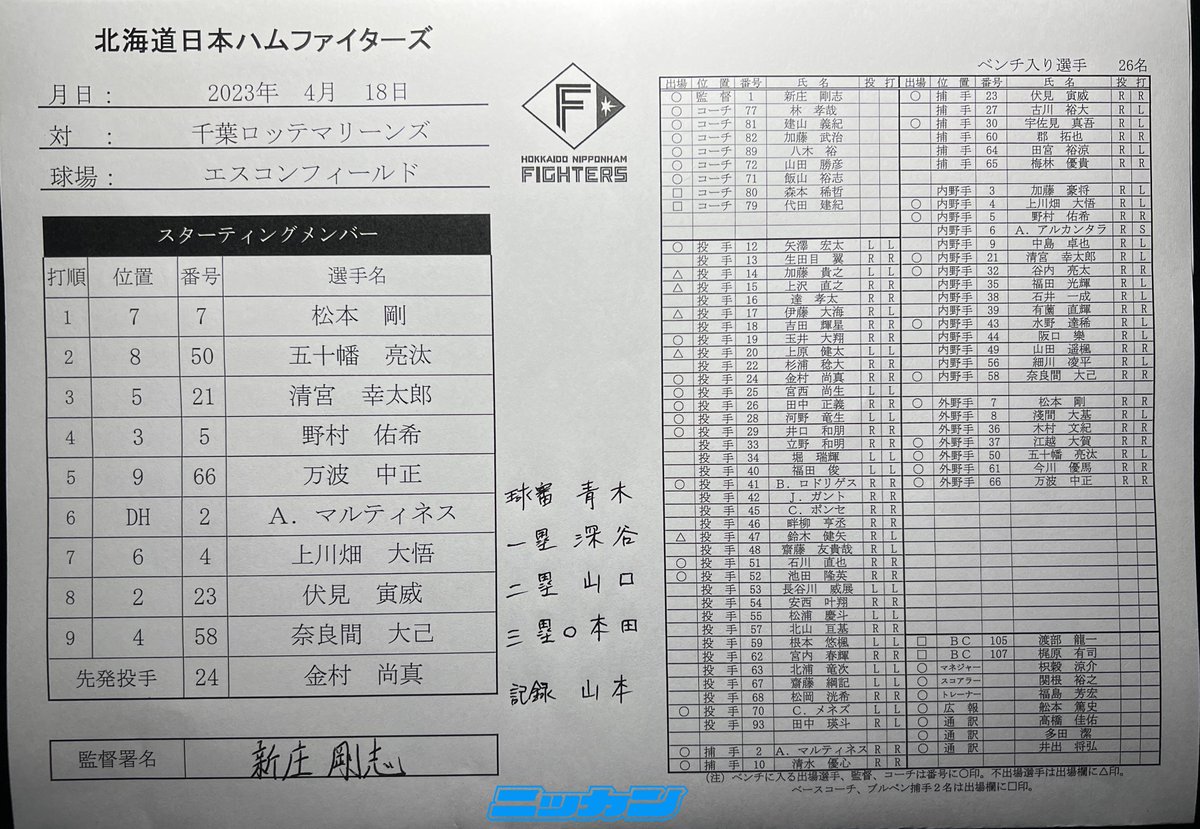 北海道日本ハムファイターズ
月日： 2023年 4月 18日
対 ： 千葉ロッテマリーンズ
球場： エスコンフィールド
F
HOKKAIDO NIPPONHAM
FIGHTERS
スターティングメンバー
打順 位置 番号 選手名
1 7 7 松本 剛
2 8 50 五十幡 亮汰
3 5 21 清宮 幸太郎
4 3 5 野村 佑希
5 9 66 万波 中正
6 DH 2 A．マルティネス
7 6 4 上川畑 大悟
8 2 23 伏見 寅威
9 4 58 奈良間 大己
先発投手 24 金村 尚真
監督署名 新庄 剛志
球審 青木
一塁 深谷
二塁 山口
三塁○本田
記録 山本
ベンチ入り選手 26名
出場 位置 番号 氏名 投 打
○ 監督 1 新庄 剛志
○ コーチ 77 林 孝哉
○ コーチ 81 建山 義紀
○ コーチ 82 加藤 武治
○ コーチ 89 八木 裕
○ コーチ 72 山田 勝彦
○ コーチ 71 飯山 裕志
□ コーチ 80 森本 稀哲
□ コーチ 79 代田 建紀
○ 投手 12 矢澤 宏太 L L
投手 13 生田目 翼 R R
△ 投手 14 加藤 貴之 L L
△ 投手 15 上沢 直之 R R
投手 16 達 孝太 R R
△ 投手 17 伊藤 大海 R L
投手 18 吉田 輝星 R R
○ 投手 19 玉井 大翔 R R
△ 投手 20 上原 健太 L L
投手 22 杉浦 稔大 R R
○ 投手 24 金村 尚真 R R
○ 投手 25 宮西 尚生 L L
○ 投手 26 田中 正義 R R
○ 投手 28 河野 竜生 L L
○ 投手 29 井口 和朋 R R
投手 33 立野 和明 R R
投手 34 堀 瑞輝 L L
投手 40 福田 俊 L L
○ 投手 41 B．ロドリゲス R R
投手 42 J．ガント R R
投手 45 C．ポンセ R R
投手 46 畔柳 亨丞 R R
△ 投手 47 鈴木 健矢 R L
投手 48 齋藤 友貴哉 R L
○ 投手 51 石川 直也 R R
○ 投手 52 池田 隆英 R R
投手 53 長谷川 威展 L L
投手 54 安西 叶翔 R R
投手 55 松浦 慶斗 L L
投手 57 北山 亘基 R R
投手 59 根本 悠楓 L L
投手 62 宮内 春輝 R R
投手 63 北浦 竜次 L L
投手 67 齋藤 綱記 L L
投手 68 松岡 洸希 R R
○ 投手 70 C．メネズ L L
投手 93 田中 瑛斗 R L
○ 捕手 2 A．マルティネス R R
○ 捕手 10 清水 優心 R R
出場 位置 番号 氏名 投 打
○ 捕手 23 伏見 寅威 R R
捕手 27 古川 裕大 R L
○ 捕手 30 宇佐見 真吾 R L
捕手 60 郡 拓也 R R
捕手 64 田宮 裕涼 R L
捕手 65 梅林 優貴 R R
内野手 3 加藤 豪将 R L
○ 内野手 4 上川畑 大悟 R L
○ 内野手 5 野村 佑希 R R
内野手 6 A．アルカンタラ R S
内野手 9 中島 卓也 R L
○ 内野手 21 清宮 幸太郎 R L
○ 内野手 32 谷内 亮太 R R
内野手 35 福田 光輝 R L
内野手 38 石井 一成 R L
内野手 39 有薗 直輝 R R
○ 内野手 43 水野 達稀 R L
内野手 44 阪口 樂 R L
内野手 49 山田 遥楓 R R
内野手 56 細川 凌平 R L
○ 内野手 58 奈良間 大己 R R
○ 外野手 7 松本 剛 R R
外野手 8 淺間 大基 R L
外野手 36 木村 文紀 R R
○ 外野手 37 江越 大賀 R R
○ 外野手 50 五十幡 亮汰 R L
○ 外野手 61 今川 優馬 R R
○ 外野手 66 万波 中正 R R
□ BC 105 渡部 龍一
□ BC 107 梶原 有司
○ マネジャー 枳穀 涼介
○ スコアラー 関根 裕之
○ トレーナー 福島 芳宏
○ 広報 舩本 篤史
○ 通訳 高橋 佳佑
○ 通訳 多田 潔
○ 通訳 井出 将弘
（注）ベンチに入る出場選手、監督、コーチは番号に○印。不出場選手は出場欄に△印。
ベースコーチ、ブルペン捕手２名は出場欄に□印。
ニッカン